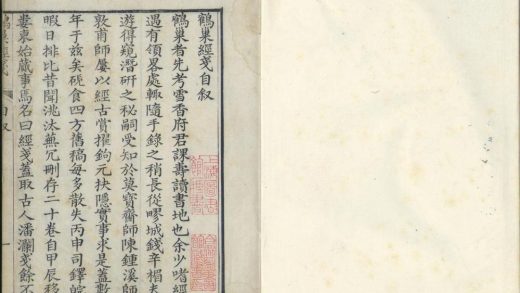 鶴巢經戔自叙
鶴巢者先考雪香府君課壽讀書地也余少嗜經
遇有領畧處輒隨手錄之稍長從疁城錢辛楣夫
遊得窺潛研之秘嗣受知於莫寶齋師陳鍾溪師
敦甫師屢以經古賞擢鉤元抉隱實事求是蓋數
年于兹矣硯食四方舊稿每多散失丙申司鐸皖
暇日排比昔聞洮汰蕪冗刪存二十卷自甲辰移
婁東始蕆事焉名曰經戔蓋取古人潘瀾戔餘不
鶴巢經戔 自叙 一